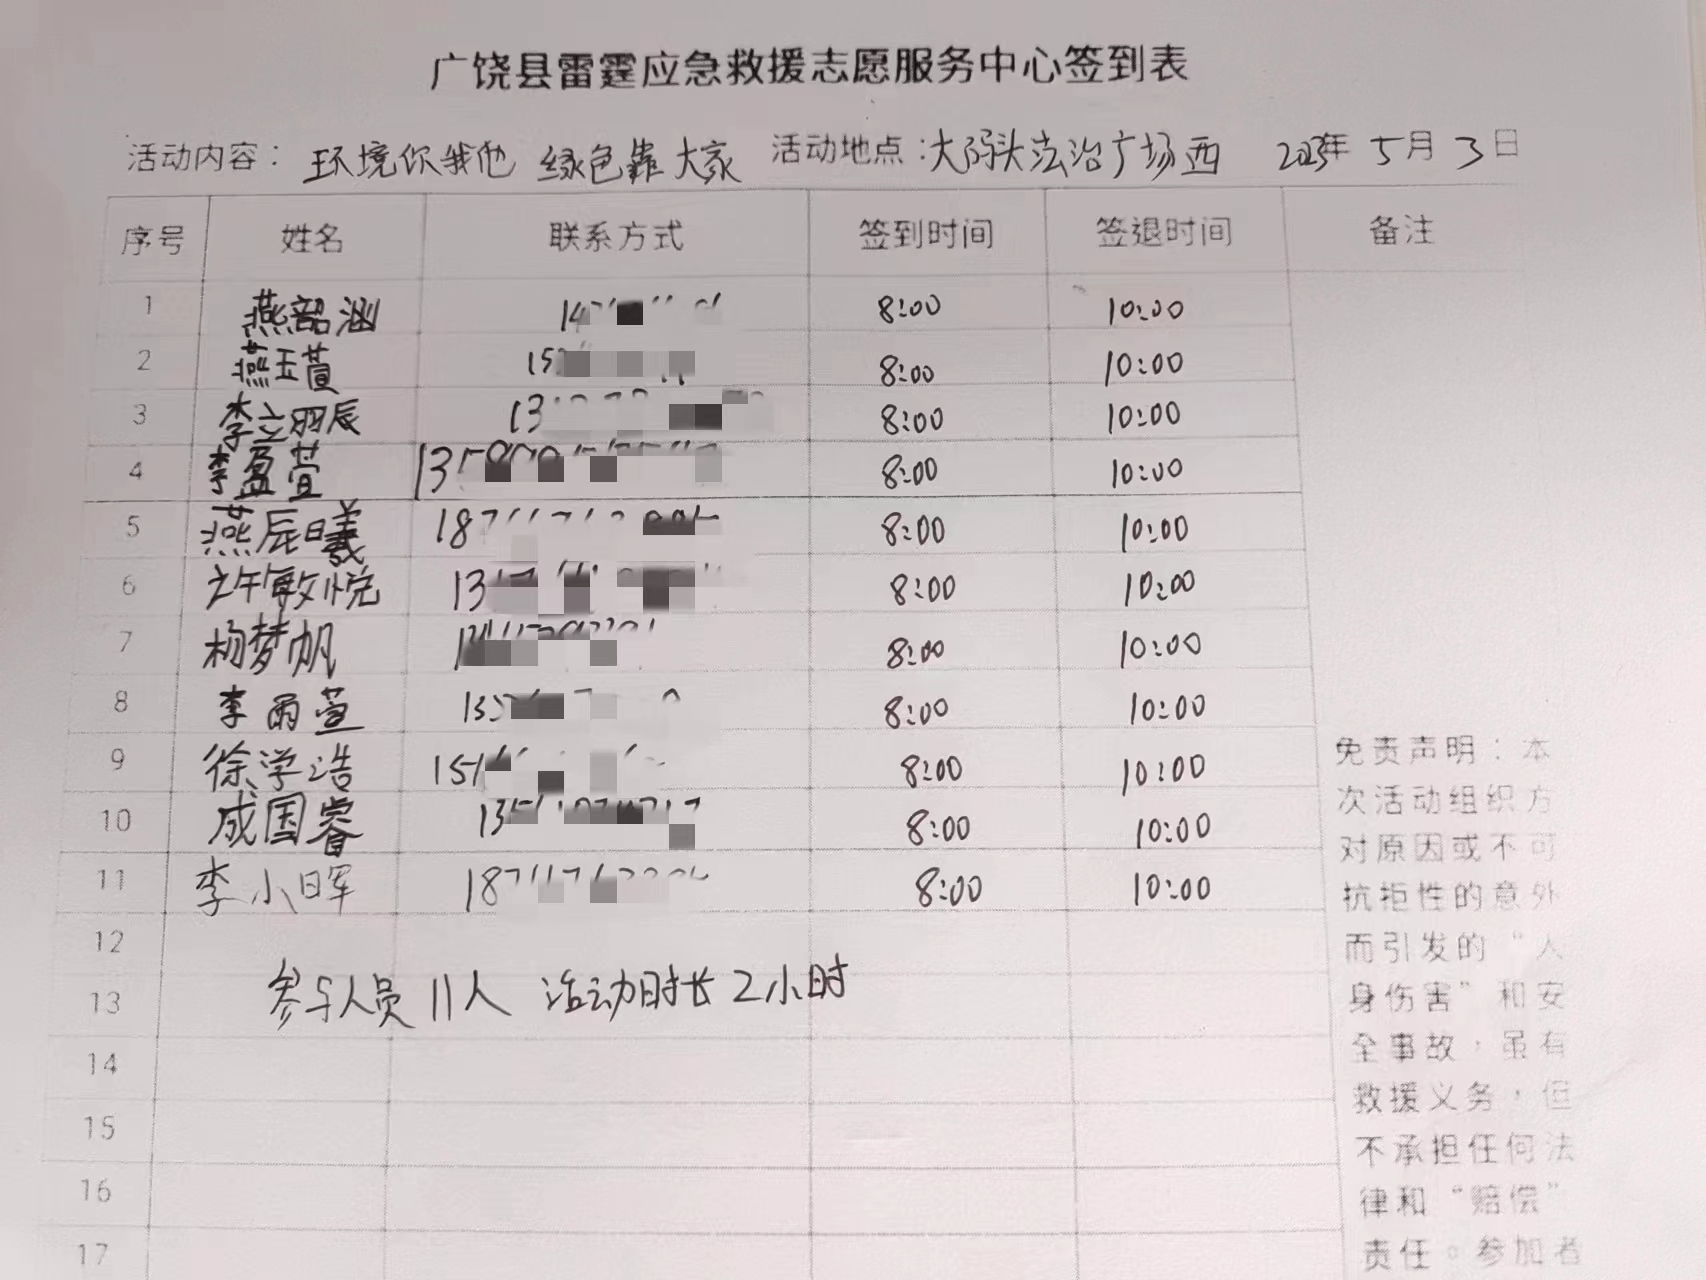 广饶县雷霆应急救援志愿服务中心签到表
活动内容：环境你我他 绿色靠大家 活动地点：大码头法治广场西 2023年5月3日
序号 姓名 联系方式 签到时间 签退时间 备注
1 燕韶涵 8:00 10:00
2 燕玉萱 15 8:00 10:00
3 李立羽辰 13 8:00 10:00
4 李盈萱 135 8:00 10:00
5 燕辰曦 187 8:00 10:00
6 许敏悦 13 8:00 10:00
7 杨梦帆 8:00 10:00
8 李雨萱 8:00 10:00
9 徐学浩 151 8:00 10:00
10 成国睿 135 8:00 10:00
11 李小晖 187 8:00 10:00
12
13 参与人员11人 活动时长2小时
14
15
16
17
免责声明：本
次活动组织方
对原因或不可
抗拒性的意外
而引发的“人
身伤害”和安
全事故，虽有
救援义务，但
不承担任何法
律和“赔偿”
责任。参加者